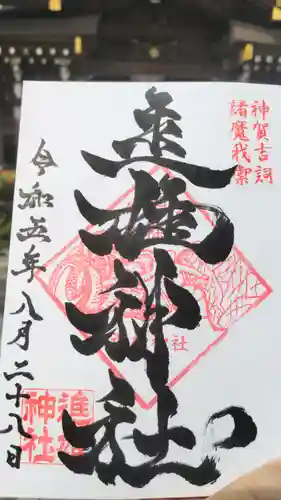 神賀吉詞
諸魔我
進雄神社
令和五年八月二十八日
進雄
神社